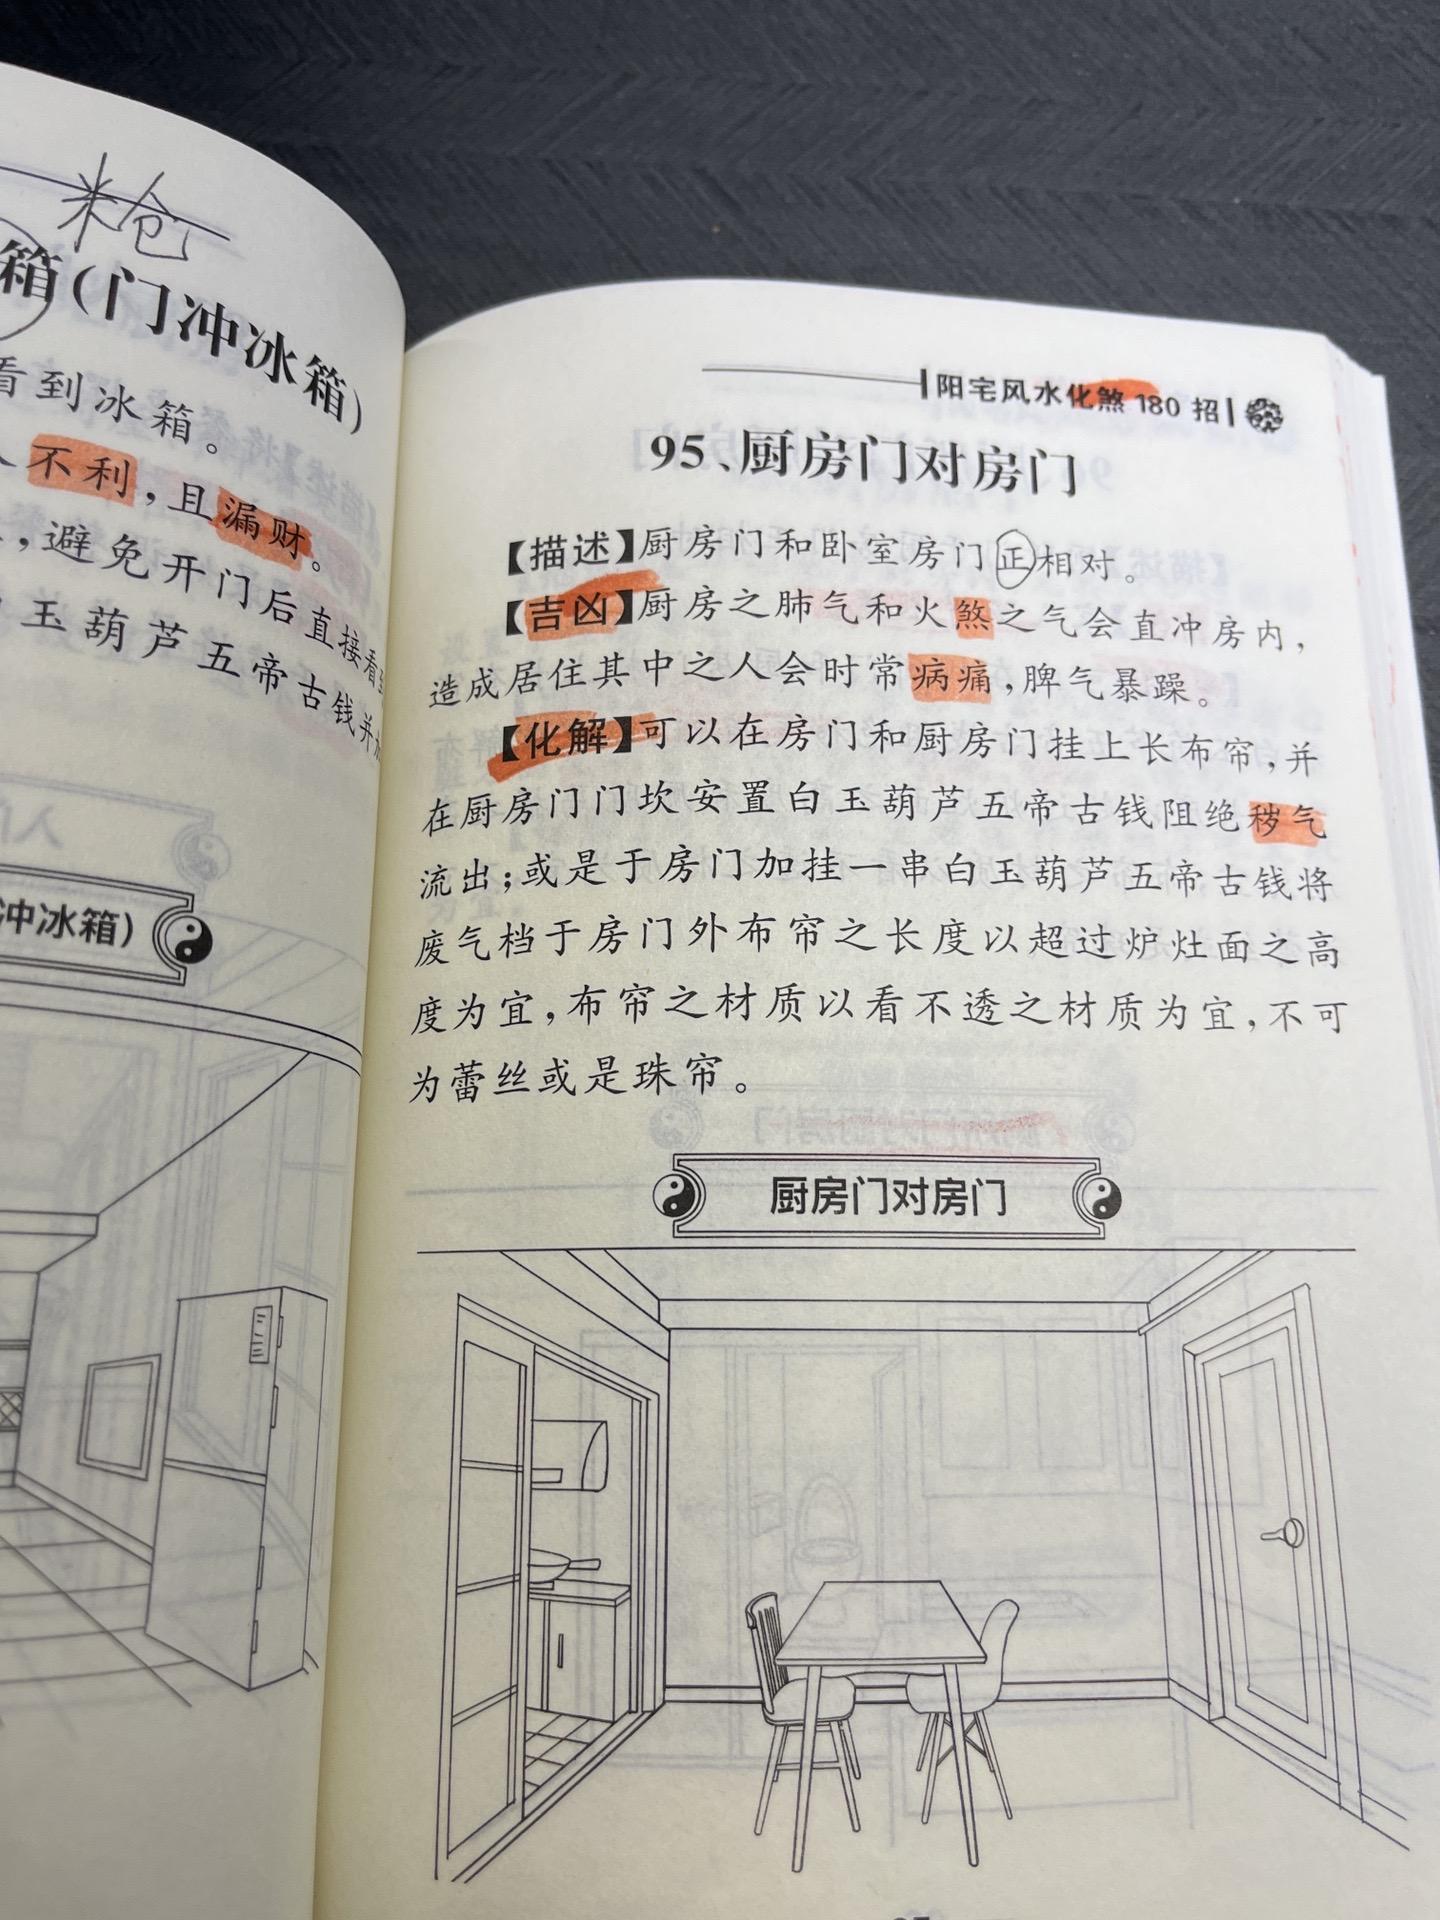 米仓
箱(门冲冰箱)
看到冰箱。
不利,且漏财。
,避免开门后直接看到
玉葫芦五帝古钱并
冲冰箱)
阳宅风水化煞 180 招
95、厨房门对房门
【描述】厨房门和卧室房门正相对。
【吉凶】厨房之肺气和火煞之气会直冲房内,
造成居住其中之人会时常病痛,脾气暴躁。
【化解】可以在房门和厨房门挂上长布帘,并
在厨房门门坎安置白玉葫芦五帝古钱阻绝秽气
流出;或是于房门加挂一串白玉葫芦五帝古钱将
废气档于房门外布帘之长度以超过炉灶面之高
度为宜,布帘之材质以看不透之材质为宜,不可
为蕾丝或是珠帘。
厨房门对房门